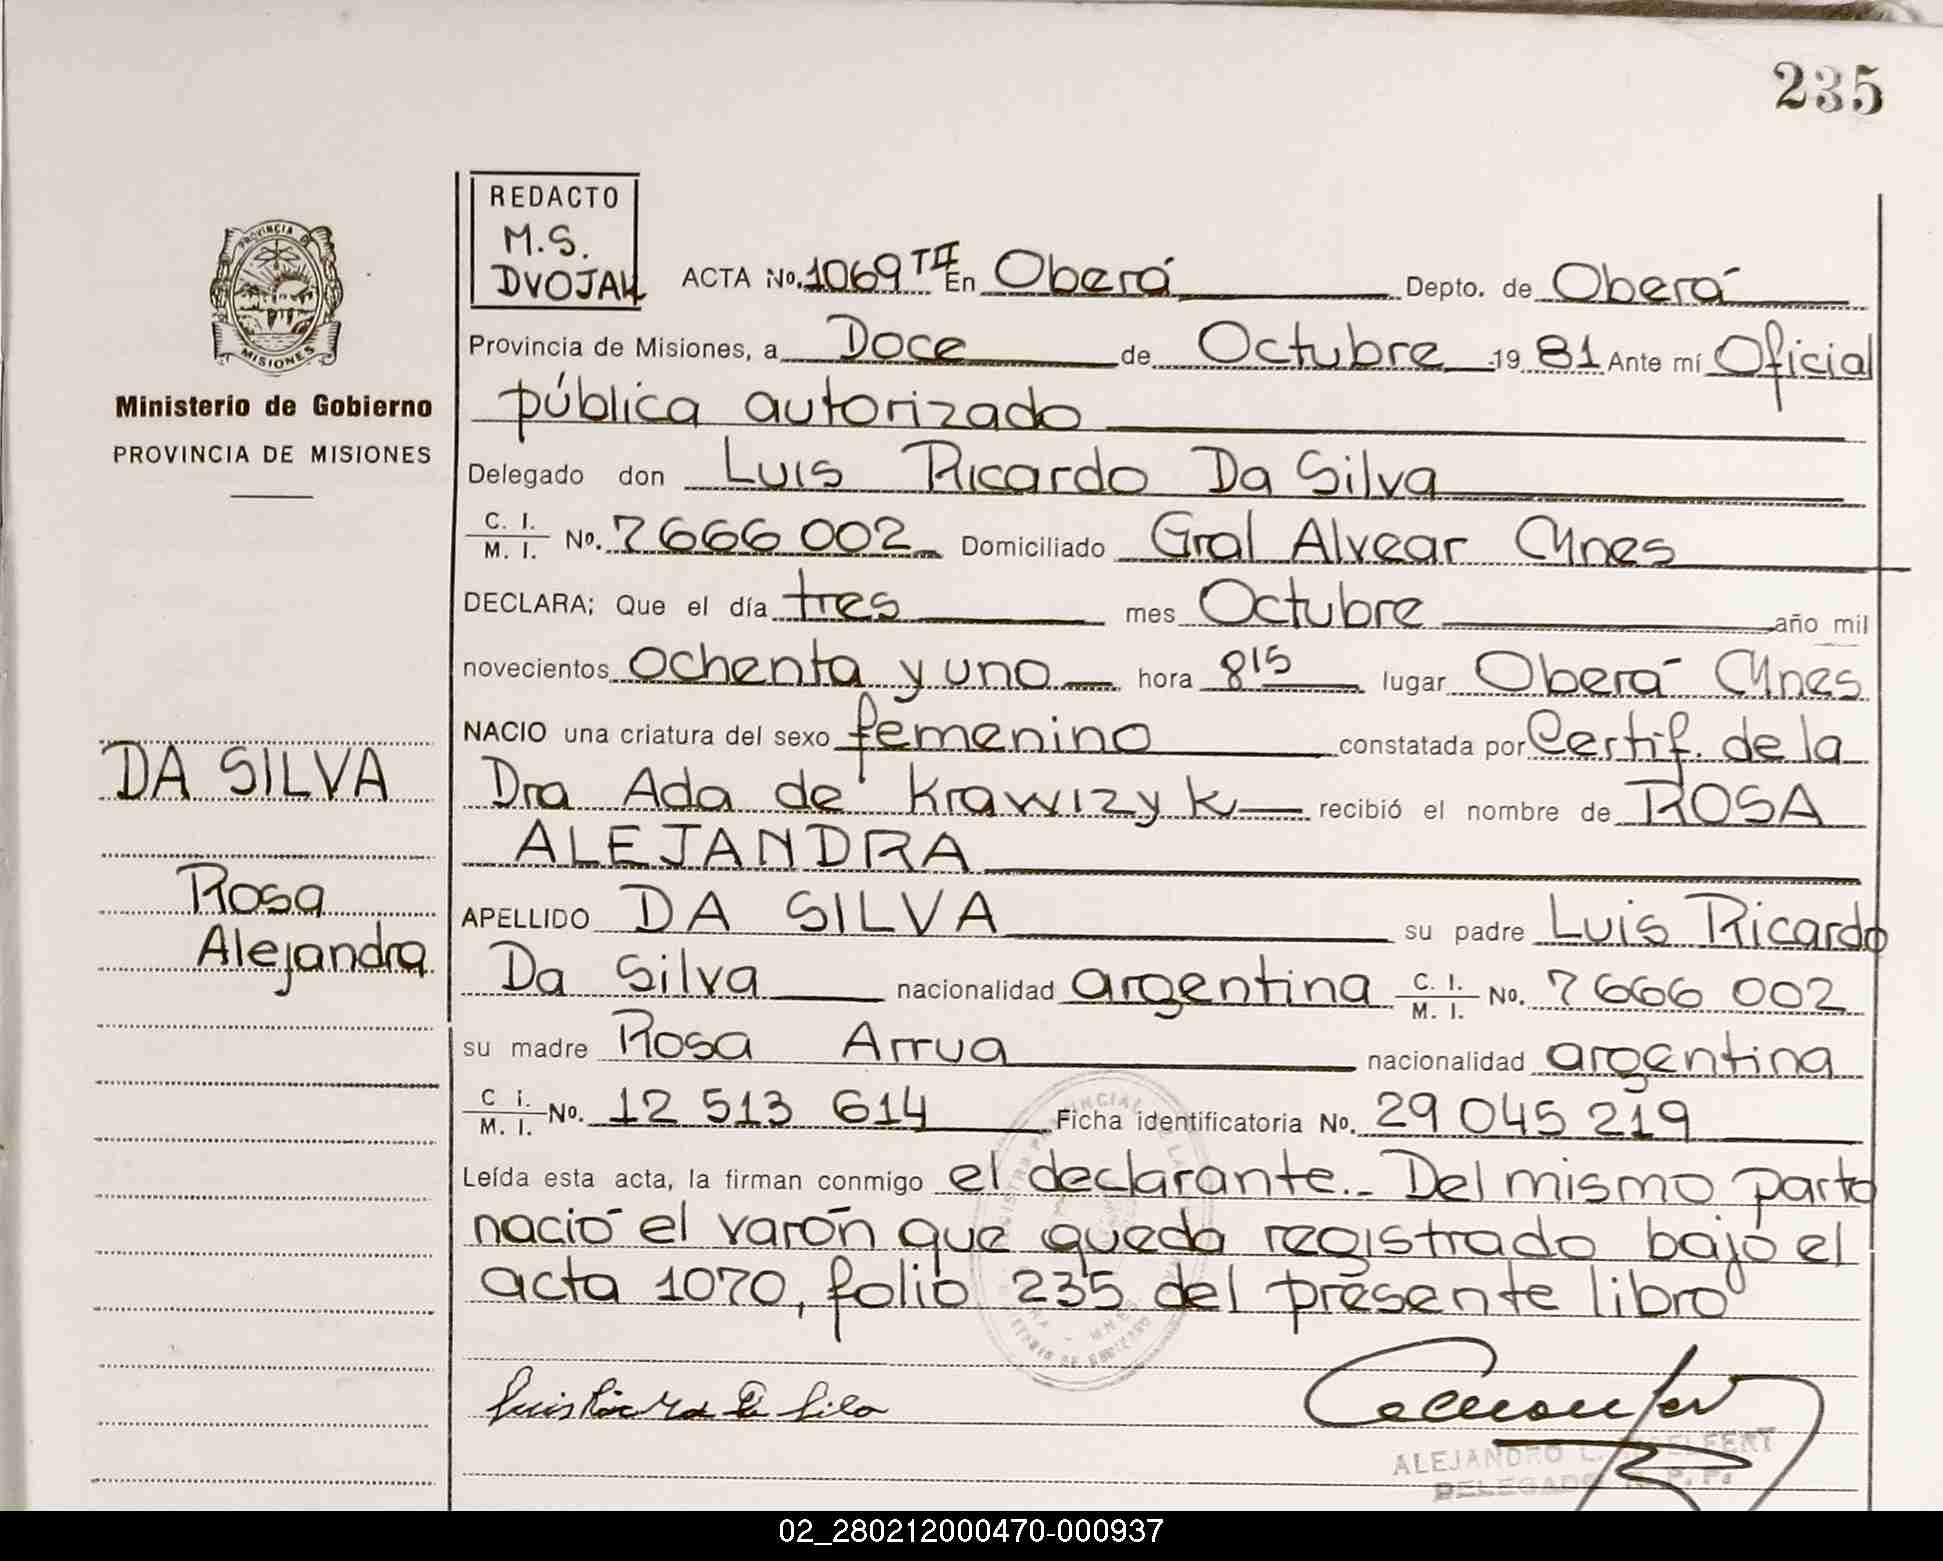 235
PROVINCIA DE
MISIONES
Ministerio de Gobierno
PROVINCIA DE MISIONES
DA SILVA
Rosa
Alejandra
REDACTO
M.S.
DVOJAK
ACTA No. 1069 TII En Oberá Depto. de Oberá
Provincia de Misiones, a Doce de Octubre 19 81 Ante mí Oficial
pública autorizado
Delegado don Luis Ricardo Da Silva
C. I. M. I. No. 7666002 Domiciliado Gral Alvear Mnes
DECLARA; Que el día tres mes Octubre año mil
novecientos ochenta y uno hora 8 15 lugar Oberá Mnes
NACIO una criatura del sexo femenino constatada por Certif. de la
Dra Ada de Krawizyk recibió el nombre de ROSA
ALEJANDRA
APELLIDO DA SILVA su padre Luis Ricardo
Da Silva nacionalidad argentina C. I. M. I. No. 7666 002
su madre Rosa Arrua nacionalidad argentina
C I. M. I. No. 12 513 614 Ficha identificatoria No. 29 045 219
Leída esta acta, la firman conmigo el declarante._ Del mismo parto
nació el varón que queda registrado bajo el
acta 1070, folio 235 del presente libro
Luis Ricardo Da Silva
ALEJANDRO L.
DELEGADO R. P. P.
02_280212000470-000937